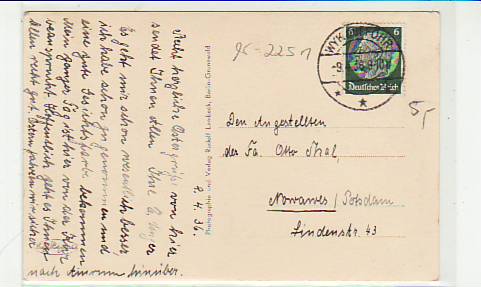 Recht herzliche Ostergrüße von hier
sendet Ihnen Allen Ihre
Es geht mir schon wesentlich besser
ich habe schon zugenommen und
eine gute Gesichtsfarbe bekommen
Mein ganzer Tag ist hier von der Kur
beansprucht. Hoffentlich geht es Ihnen
Allen recht gut. Ostern fahren wir
nach Amrum hinüber.
8.4.36.
Photographie und Verlag Rudolf Lambeck, Berlin-Grunewald
95-2251
WYK FÖHR
6
Deutsches Reich
5,-
Den Angestellten
der Fa. Otto Thal,
Nowawes / Potsdam
Lindenstr. 43